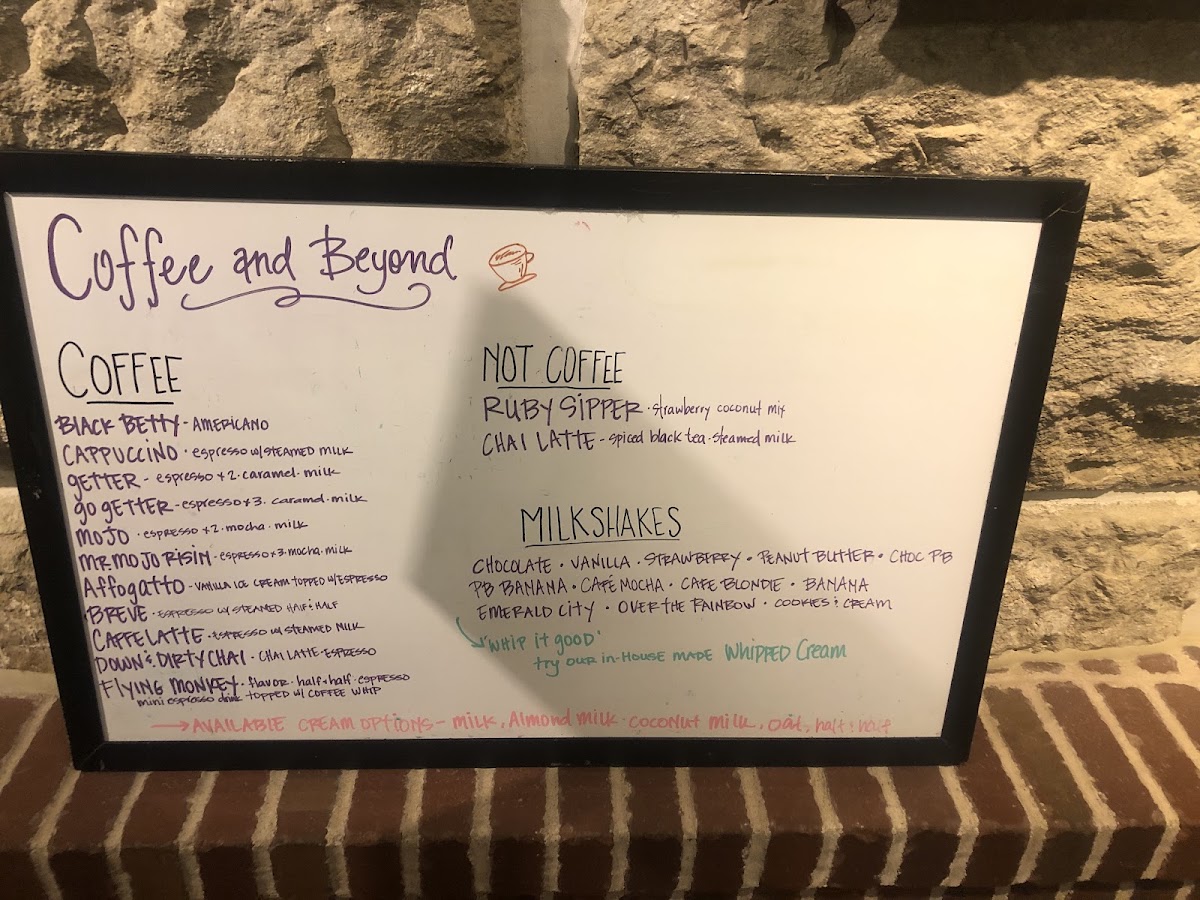 Coffee and Beyond
COFFEE
BLACK BETTY - AMERICANO
CAPPUCCINO · espresso w/STEAMED MILK
GETTER - espresso x 2 · caramel · milk
go GETTER - espresso x 3 · caramel · milk
MOJO · espresso x 2 · mocha · milk
MR MOJO RISIN · espresso x 3 · mocha · milk
Affogatto - VANILLA ICE CREAM TOPPED W/ESPRESSO
BREVE · ESPRESSO W/ STEAMED HALF & HALF
CAFFE LATTE · ESPRESSO W/ STEAMED MILK
DOWN & DIRTY CHAI · CHAI LATTE · ESPRESSO
FLYING MONKEY · flavor · half + half · espresso
mini espresso drink TOPPED W/ COFFEE WHIP
NOT COFFEE
RUBY SIPPER · strawberry coconut mix
CHAI LATTE - spiced black tea · steamed milk
MILKSHAKES
CHOCOLATE · VANILLA · STRAWBERRY · PEANUT BUTTER · CHOC PB
PB BANANA · CAFÉ MOCHA · CAFE BLONDIE · BANANA
EMERALD CITY · OVER THE RAINBOW · COOKIES & CREAM
'WHIP it good'
try our in-House MADE WHIPPED Cream
→ AVAILABLE CREAM OPTIONS - MILK, Almond milk · coconut milk, oat, half & half